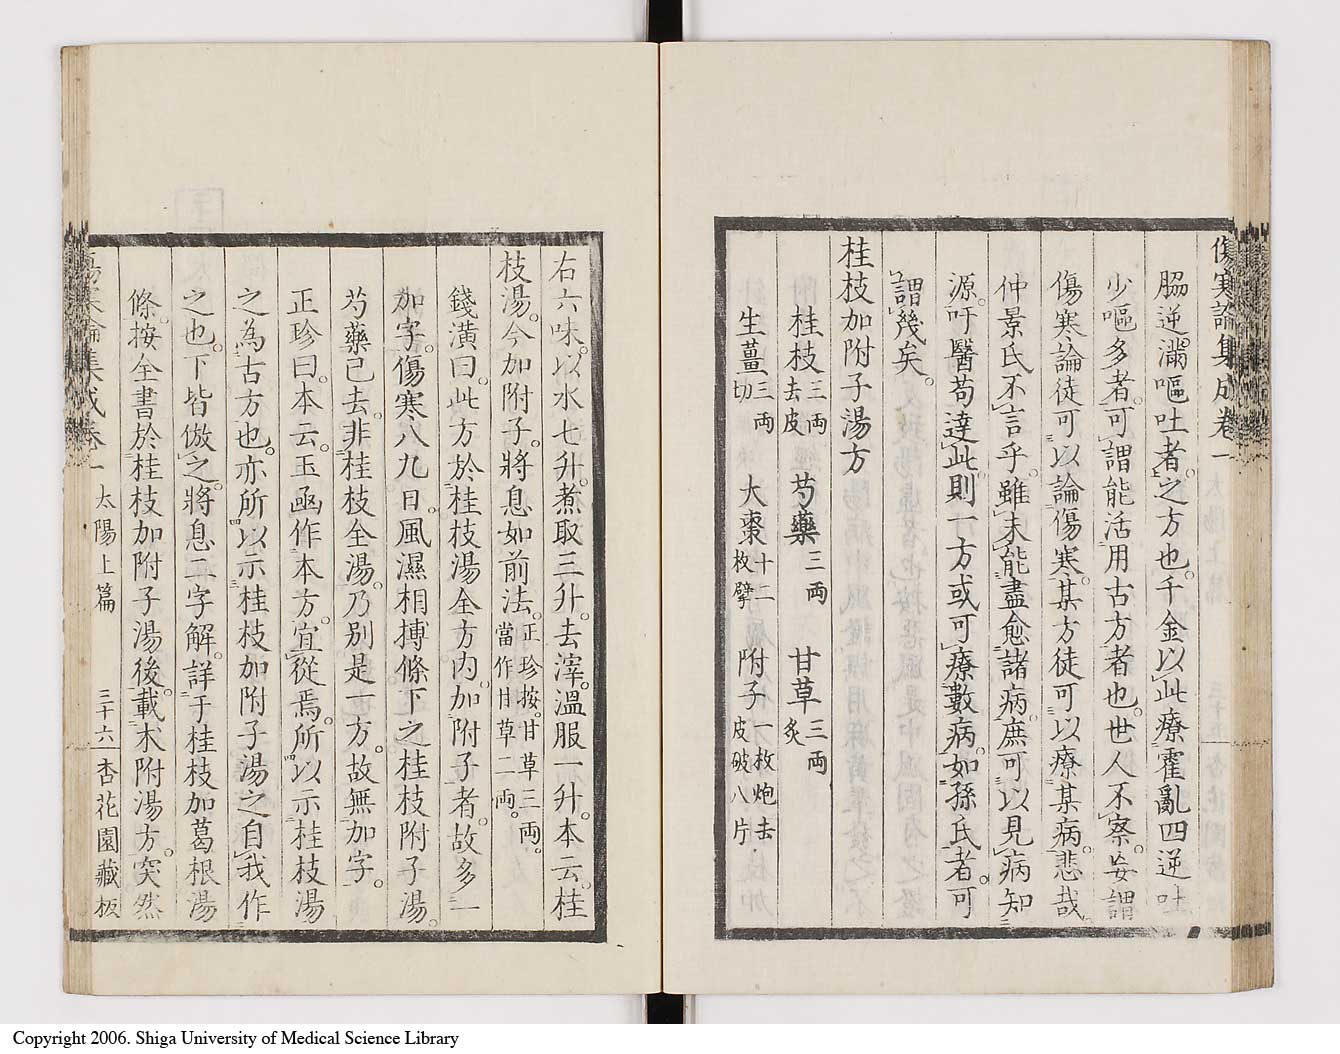 傷寒論集成卷一
脇逆滿嘔吐者之方也千金以此療霍亂四逆吐
少嘔多者可謂能活用古方者也世人不察妄謂
傷寒論徒可以論傷寒某方徒可以療某病悲哉
仲景氏不言乎雖未能盡愈諸病庶可以見病知
源吁醫苟達此則一方或可療數病如孫氏者可
謂幾矣
桂枝加附子湯方
附桂枝三兩去皮 芍藥三兩 甘草三兩炙
生薑三兩切 大棗十二枚擘 附子一枚炮去皮破八片
右六味以水七升煮取三升去滓溫服一升本云桂
枝湯今加附子將息如前法正珍按甘草三兩當作甘草二兩
錢潢曰此方於桂枝湯全方內加附子者故多一
加字傷寒八九日風濕相搏條下之桂枝附子湯
芍藥已去非桂枝全湯乃別是一方故無加字
正珍曰本云玉函作本方宜從焉所以示桂枝湯
之為古方也亦所以示桂枝加附子湯之自我作
之也下皆倣之將息二字解詳于桂枝加葛根湯
條按全書於桂枝加附子湯後載朮附湯方突然
傷寒論集成卷一 太陽上篇 三十六 杏花園藏板
Copyright 2006. Shiga University of Medical Science Library